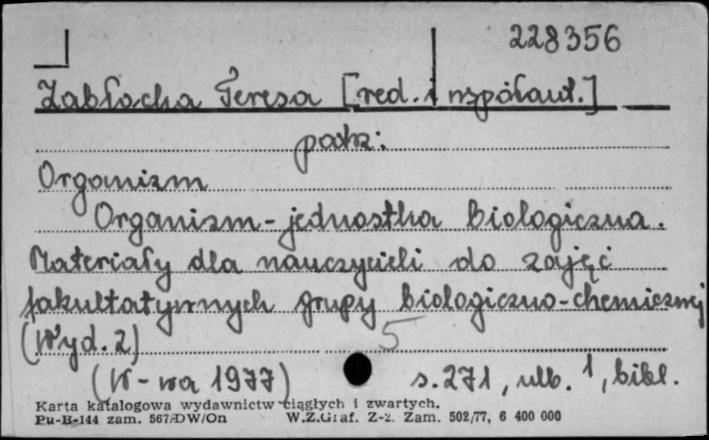 228356
Zabłocka Teresa [red. i współaut.]
patrz:
Organizm
Organizm - jednostka biologiczna.
Materiały dla nauczycieli do zajęć
fakultatywnych grupy biologiczno-chemicznej
(Wyd. 2) 5
(W-wa 1977) s. 271, ulb. 1, bibl.
Karta katalogowa wydawnictw ciągłych i zwartych.
Pu-B-144 zam. 567/DW/On W.Z.Graf. Z-2. Zam. 502/77, 6 400 000